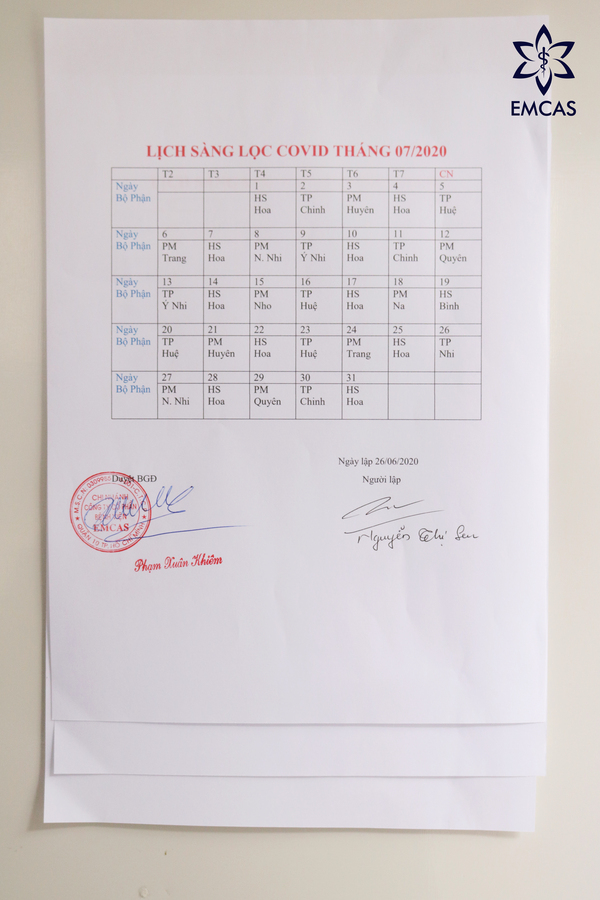 EMCAS
LỊCH SÀNG LỌC COVID THÁNG 07/2020
T2 T3 T4 T5 T6 T7 CN
Ngày 1 2 3 4 5
Bộ Phận HS TP PM HS TP
Hoa Chinh Huyên Hoa Huệ
Ngày 6 7 8 9 10 11 12
Bộ Phận PM HS PM TP HS TP PM
Trang Hoa N. Nhi Ý Nhi Hoa Chinh Quyên
Ngày 13 14 15 16 17 18 19
Bộ Phận TP HS PM TP HS PM HS
Ý Nhi Hoa Nho Huệ Hoa Na Bình
Ngày 20 21 22 23 24 25 26
Bộ Phận TP PM HS TP PM HS TP
Huệ Huyên Hoa Huệ Trang Hoa Nhi
Ngày 27 28 29 30 31
Bộ Phận PM HS PM TP HS
N. Nhi Hoa Quyên Chinh Hoa
Ngày lập 26/06/2020
Duyệt BGĐ Người lập
CHI NHÁNH
CÔNG TY CỔ PHẦN
BỆNH VIỆN
EMCAS
Nguyễn Thị Sen
Phạm Xuân Khiêm